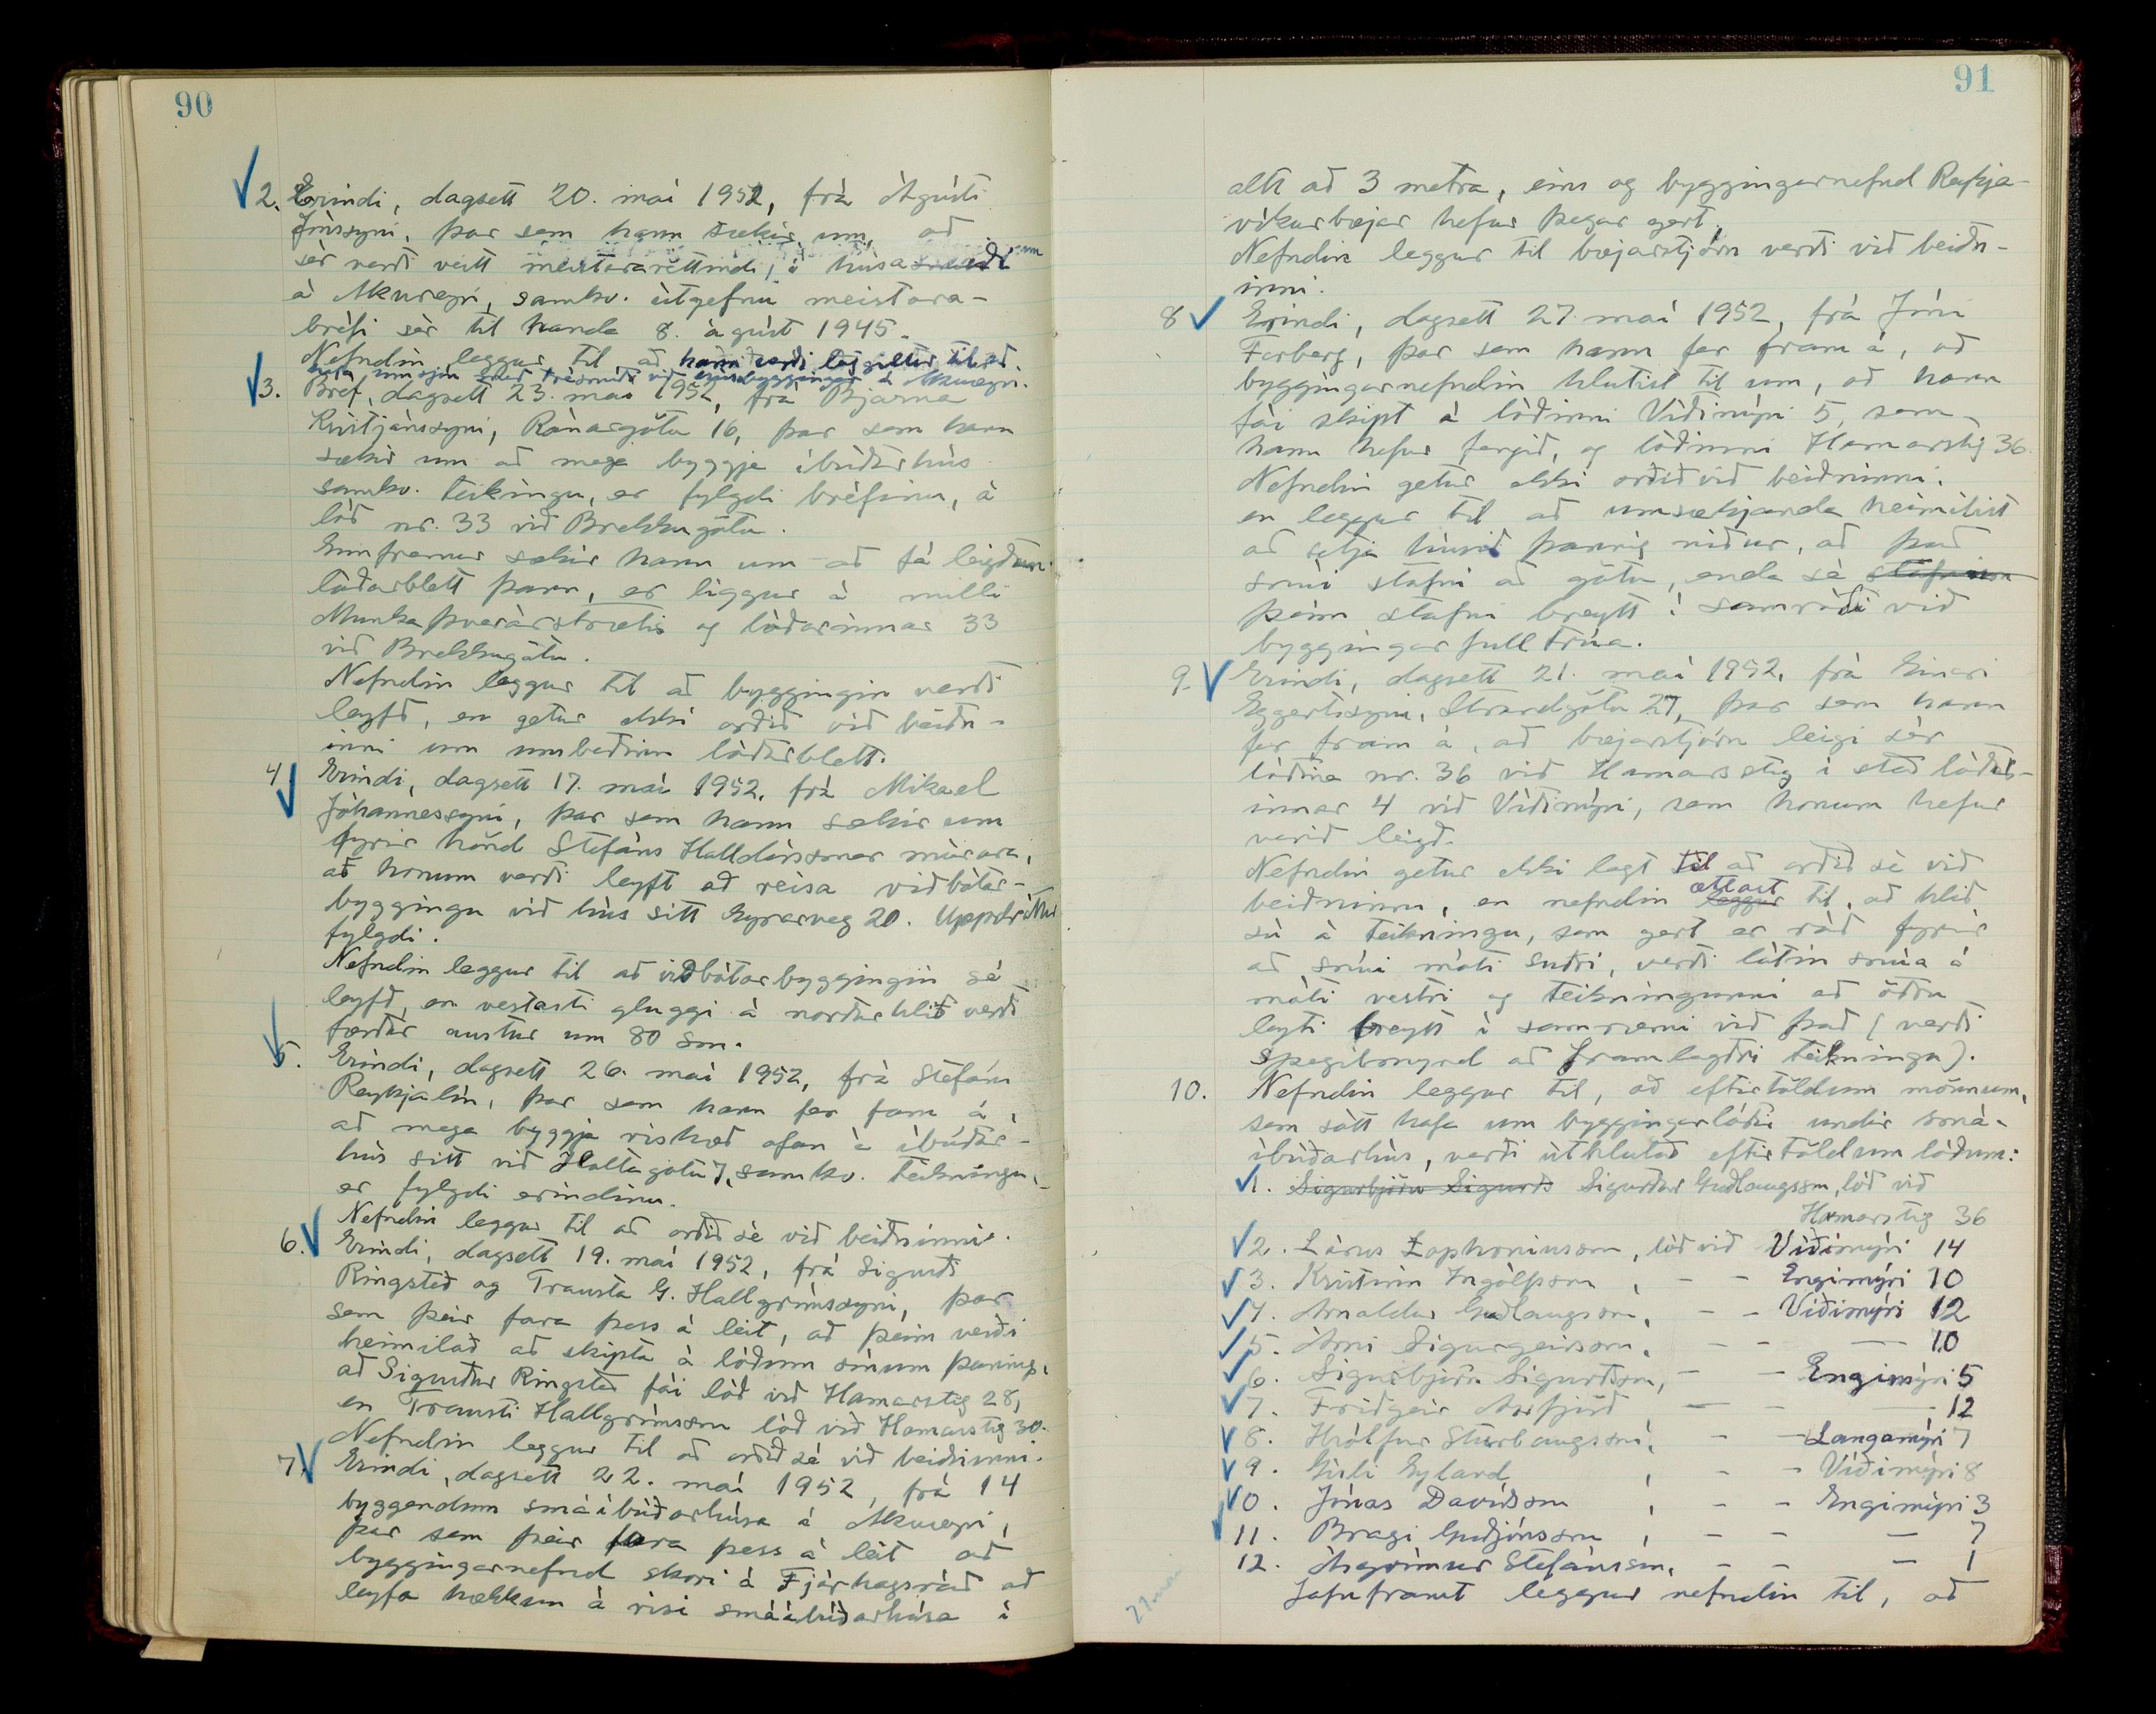 90
2. Erindi, dagsett 20. maí 1952, frá Ágústi
Jónssyni, þar sem hann sækir um, að
sér verði veitt meistararéttindi, í húsasmíði
á Akureyri, samkv. útgefnu meistara-
bréfi sér til handa 8. ágúst 1945.
Nefndin leggur til að hann verði löggiltur til að
hafa umsjón með trésmíði við húsbyggingar á Akureyri.
3. Bréf, dagsett 23. maí 1952, frá Bjarna
Kristjánssyni, Ránargötu 16, þar sem hann
sækir um að mega byggja íbúðarhús
samkv. teikningu, er fylgdi bréfinu, á
lóð nr. 33 við Brekkugötu.
Ennfremur sækir hann um að fá leigðan
lóðarblett þann, er liggur á milli
Munkaþverárstrætis og lóðarinnar 33
við Brekkugötu.
Nefndin leggur til að byggingin verði
leyfð, en getur ekki orðið við beiðn-
inni um umbeðinn lóðarblett.
4 Erindi, dagsett 17. maí 1952, frá Mikael
Jóhannessyni, þar sem hann sækir um
fyrir hönd Stefáns Halldórssonar múrara,
að honum verði leyft að reisa viðbótar-
byggingu við hús sitt Eyrarveg 20. Uppdráttur
fylgdi.
Nefndin leggur til að viðbótarbyggingin sé
leyfð, en vestasti gluggi á norðurhlið verði
færður austur um 80 sm.
5. Erindi, dagsett 26. maí 1952, frá Stefáni
Reykjalín, þar sem hann fer fram á,
að mega byggja rishæð ofan á íbúðar-
hús sitt við Holtagötu 7, samkv. teikningu,
er fylgdi erindinu.
Nefndin leggur til að orðið sé við beiðninni.
6. Erindi, dagsett 19. maí 1952, frá Sigurði
Ringsted og Trausta G. Hallgrímssyni, þar
sem þeir fara þess á leit, að þeim verði
heimilað að skipta á lóðum sínum þannig,
að Sigurður Ringsted fái lóð við Hamarstíg 28,
en Trausti Hallgrímsson lóð við Hamarstíg 30.
Nefndin leggur til að orðið sé við beiðninni.
7. Erindi, dagsett 22. maí 1952, frá 14
byggendum smáíbúðarhúsa á Akureyri,
þar sem þeir fara þess á leit að
byggingarnefnd skori á Fjárhagsráð að
leyfa hækkun á risi smáíbúðarhúsa í
91
allt að 3 metra, eins og byggingarnefnd Reykja-
víkurbæjar hefur þegar gert.
Nefndin leggur til bæjarstjórn verði við beiðn-
inni.
8 Erindi, dagsett 27. maí 1952, frá Jóni
Forberg, þar sem hann fer fram á, að
byggingarnefndin hlutist til um, að hann
fái skipt á lóðinni Víðimýri 5, sem
hann hefur fengið, og lóðinni Hamarstíg 36.
Nefndin getur ekki orðið við beiðninni,
en leggur til að umsækjanda heimilist
að setja húsið þannig niður, að það
snúi stafni að götu, enda sé stafninn
þeim stafni breytt í samráði við
byggingarfulltrúa.
9. Erindi, dagsett 21. maí 1952, frá Einari
Eggertssyni, Strandgötu 27, þar sem hann
fer fram á, að bæjarstjórn leigi sér
lóðina nr. 36 við Hamarsstíg í stað lóðar-
innar 4 við Víðimýri, sem honum hefur
verið leigð.
Nefndin getur ekki lagt til að orðið sé við
ætlast
beiðninni, en nefndin leggur til, að hlið
sú á teikningu, sem gert er ráð fyrir
að snúi móti suðri, verði látin snúa á
móti vestri og teikningunni að öðru
leyti breytt í samræmi við það (verði
spegilmynd að framlagðri teikningu).
10. Nefndin leggur til, að eftirtöldum mönnum,
sem sótt hafa um byggingarlóðir undir smá-
íbúðarhús, verði úthlutað eftirtöldum lóðum:
1. Sigurbjörn Sigurðs Sigurður Guðlaugsson, lóð við
Hamarstíg 36
2. Lárus Zophoniasson, lóð við Víðimýri 14
3. Kristinn Ingólfsson, - - Engimýri 10
4. Arnaldur Guðlaugsson, - - Víðimýri 12
5. Árni Sigurgeirsson, - - — 10
6. Sigurbjörn Sigurðsson, - - Engimýri 5
7. Friðgeir - - — 12
8. Hrólfur Sturlaugsson, - - Langamýri 7
9. Gísli Eyland, - - Víðimýri 8
10. Jónas Davíðsson, - - Engimýri 3
11. Bragi Guðjónsson, - - — 7
12. Ásgrímur Stefánsson, - - — 1
Jafnframt leggur nefndin til, að